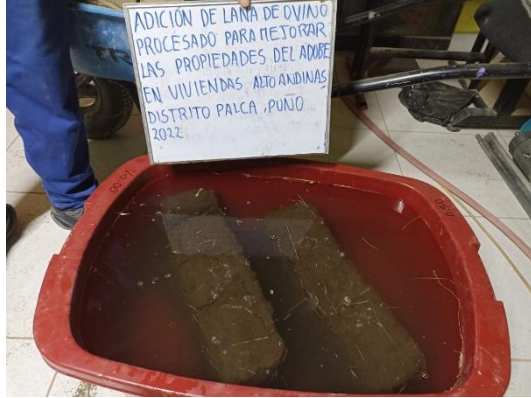 ADICIÓN DE LANA DE OVINO
PROCESADO PARA MEJORAR
LAS PROPIEDADES DEL ADOBE
EN VIVIENDAS ALTOANDINAS,
DISTRITO PALCA, PUNO
2022